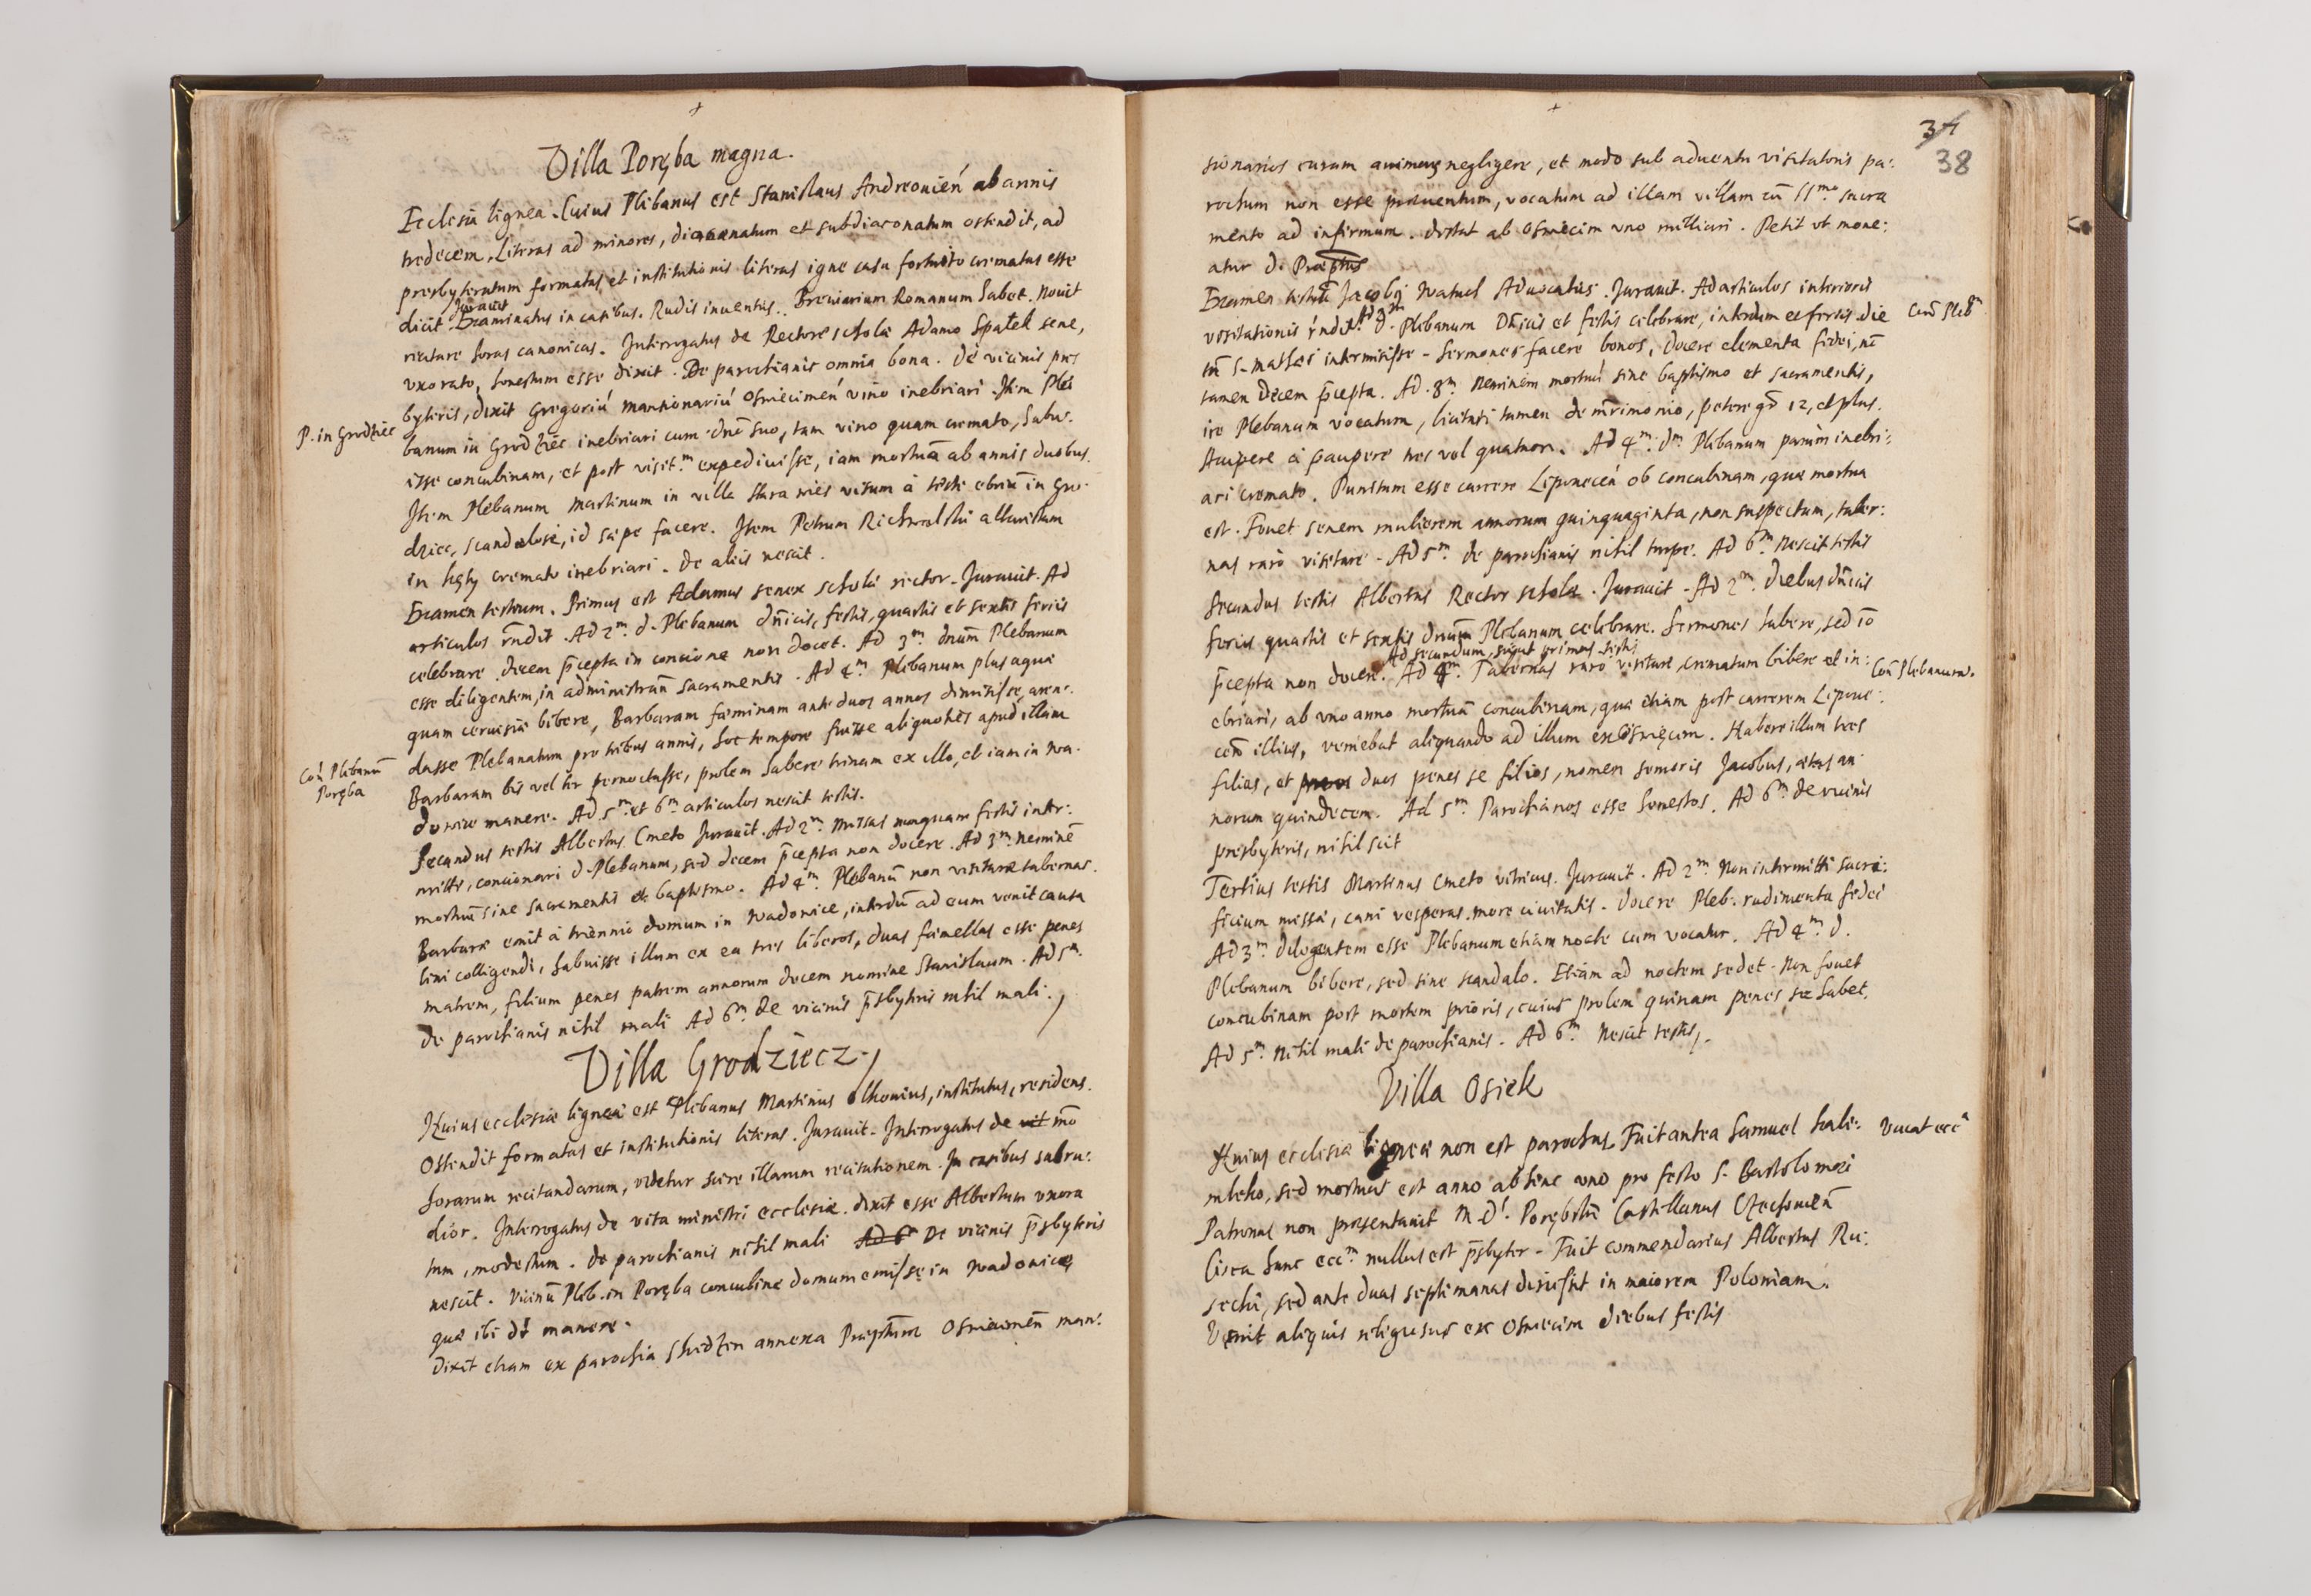 Villa Poręba magna.
Ecclesia lignea. Cuius Plebanus est Stanislaus Andreouień ab annis
tredecem. Literas ad minores, diaconatum et subdiaconatum ostendit, ad
presbyteratum formatas et institutionis literas igne casu fortuito crematas esse
Jurauit
dicit. Examinatus in casibus. Rudis inuentus. Breuiarium Romanum habet. Nouit
recitare horas canonicas. Interrogatus de Rectore scholæ Adamo Spatek sene,
vxorato, honestum esse dixit. De parochianis omnia bona. De vicinis pres
byteris, dixit Gregoriū mansionariū Osmiecimeń vino inebriari. Item Ple
P. in Grodziec
banum in Grodziec inebriari cum dnō suo, tam vino quam cremato, habu:
isse concubinam, et post visit.m expediuisse, iam mortuā ab annis duobus.
Item Plebanum Martinum in villa Stara wies visum à teste ebriū in Gro-
dziec, scandalose, id sæpe facere. Item Petrum Richwalski altaristam
in Kęty cremato inebriari. De aliis nescit.
Examen testium. Primus est Adamus senex scholæ rector. Jurauit. Ad
articulos rñdit. Ad 2m. d. Plebanum dñicis, festis, quartis et sextis feriis
celebrare. Decem p̄cepta in concione non docet. Ad 3m dnum Plebanum
esse diligentem, in administran̄ sacramentis. Ad 4m Plebanum plus aquæ
quam ceruisiæ bibere, Barbaram fæminam ante duos annos dimisisse, aren:
dasse Plebanatum pro tribus annis, hoc tempore fuisse aliquoties apud illam
Coń Plebanū
Poręba
Barbaram bis vel ter pernoctasse, prolem habere trinam ex illo, et iam in Wa-
dowice manere. Ad 5m et 6m articulos nescit testis.
Secundus testis Albertus Cmeto Jurauit. Ad 2m. Missas nunquam festis inter:
mitti, concionari d. Plebanum, sed decem p̄cepta non docere. Ad 3m neminē
mortuū sine sacramentis et baptismo. Ad 4m. Plebanū non visitare tabernas.
Barbaræ emit à triennio domum in Wadowice, interdū ad eum venit causa
lini colligendi, habuisse illum ex ea tres liberos, duas fæmellas esse penes
matrem, filium penes patrem annorum decem nomine Stanislaum. Ad 5m.
de parochianis nihil mali Ad 6m. de vicinis p̄sbyteris nihil mali.
Villa Grodziecz
Huius ecclesiæ ligneæ est Plebanus Martinus Olkouius, institutus, residens.
Ostendit formatas et institutionis literas. Jurauit. Interrogatus de vit mō
horarum recitandarum, videtur scire illarum recitationem. In casibus subru:
dior. Interrogatus de vita ministri ecclesiæ. dixit esse Albertum vxora
tum, modestum. De parochianis nihil mali Ad 6 De vicinis p̄sbyteris
nescit. Vicinū Pleb. in Poręba concubinæ domum emisse in Wadowice
quæ ibi dr manere.
Dixit etiam ex parochia Skidzin annexa Præpturæ Osmiecimeñ man:
34
38
sionarios curam animarum negligere, et modo sub aduentu visitatoris pa:
rochum non esse præuentum, vocatum ad illam villam cū SSmo sacra
mento ad infirmum. distat ab Osmiecim vno milliari. Petit vt mone:
atur d. Præptus
Examen testiū Jacobj Watuch Aduocatus. Jurauit. Ad articulos interioris
visitationis rñdit. Ad 2m d. Plebanum Dñicis et festis celebrare, interdum et feriis. die
Coñ Plebm
tñ S. Mathei intermisisse. Sermones facere bonos, docere elementa fidei, nō
tamen decem p̄cepta. Ad. 3m Neminem mortuū sine baptismo et sacramentis,
ire Plebanum vocatum, licitari tamen de m̄rimonio, petere gō 12, et plus.
Accipere à paupere tres vel quatuor. Ad 4m. dm. Plebanum parum inebri:
ari cremato. Punitum esse carcere Lipouecen̄ ob concubinam, quæ mortua
est. Fouet senem mulierem annorum quinquaginta, non suspectam, taber:
nas raro visitare. Ad 5m. de parochianis nihil turpe. Ad 6m. Nescit testis
Secundus testis Albertus Rector scholæ. Jurauit. Ad 2m. diebus dñicis
feriis quartis et sextis dnum Plebanum celebrare. Sermones habere, sed 10
Ad secundum, sicut primus testis
p̄cepta non docere. Ad 4m. Tabernas raro visitare, crematum bibere et in:
Coñ Plebanum.
ebriari, ab vno anno mortuā concubinam, quæ etiam post carcerem Lipoue:
ceñ illius, veniebat aliquando ad illum ex Osmięcim. Habere illum tres
filias, et duos penes se filios, nomen senioris Jacobus, ætas an
norum quindecem. Ad 5m. Parochianos esse honestos. Ad 6m. de vicinis
presbyteris, nihil scit
Tertius testis Martinus Cmeto vitricus. Jurauit. Ad 2m. Non intermitti sacri:
ficium missæ, cani vesperas more ciuitatis. docere Pleb. rudimenta fidei
Ad 3m. diligentem esse Plebanum etiam nocte cum vocatur. Ad 4m. d.
Plebanum bibere, sed sine scandalo. Etiam ad noctem sedet. Non fouet
concubinam post mortem prioris, cuius prolem quinam penes se habet.
Ad 5m. Nihil mali de parochianis. Ad 6m. Nescit testis.
Villa Osiek
Huius ecclesiæ ligneæ non est parochus. Fuit antea Samuel Kali:
Vacat ecca
mleko, sed mortuus est anno abhinc vno pro festo S. Bartolomæi
Patronus non præsentauit M. D. Porębski Castellanus Ozechouień
Circa hanc eccm nullus est p̄sbyter. Fuit commendarius Albertus Ru:
secki, sed ante duas septimanas discessit in maiorem Poloniam.
Venit aliquis religiosus ex Osmiecim diebus festis